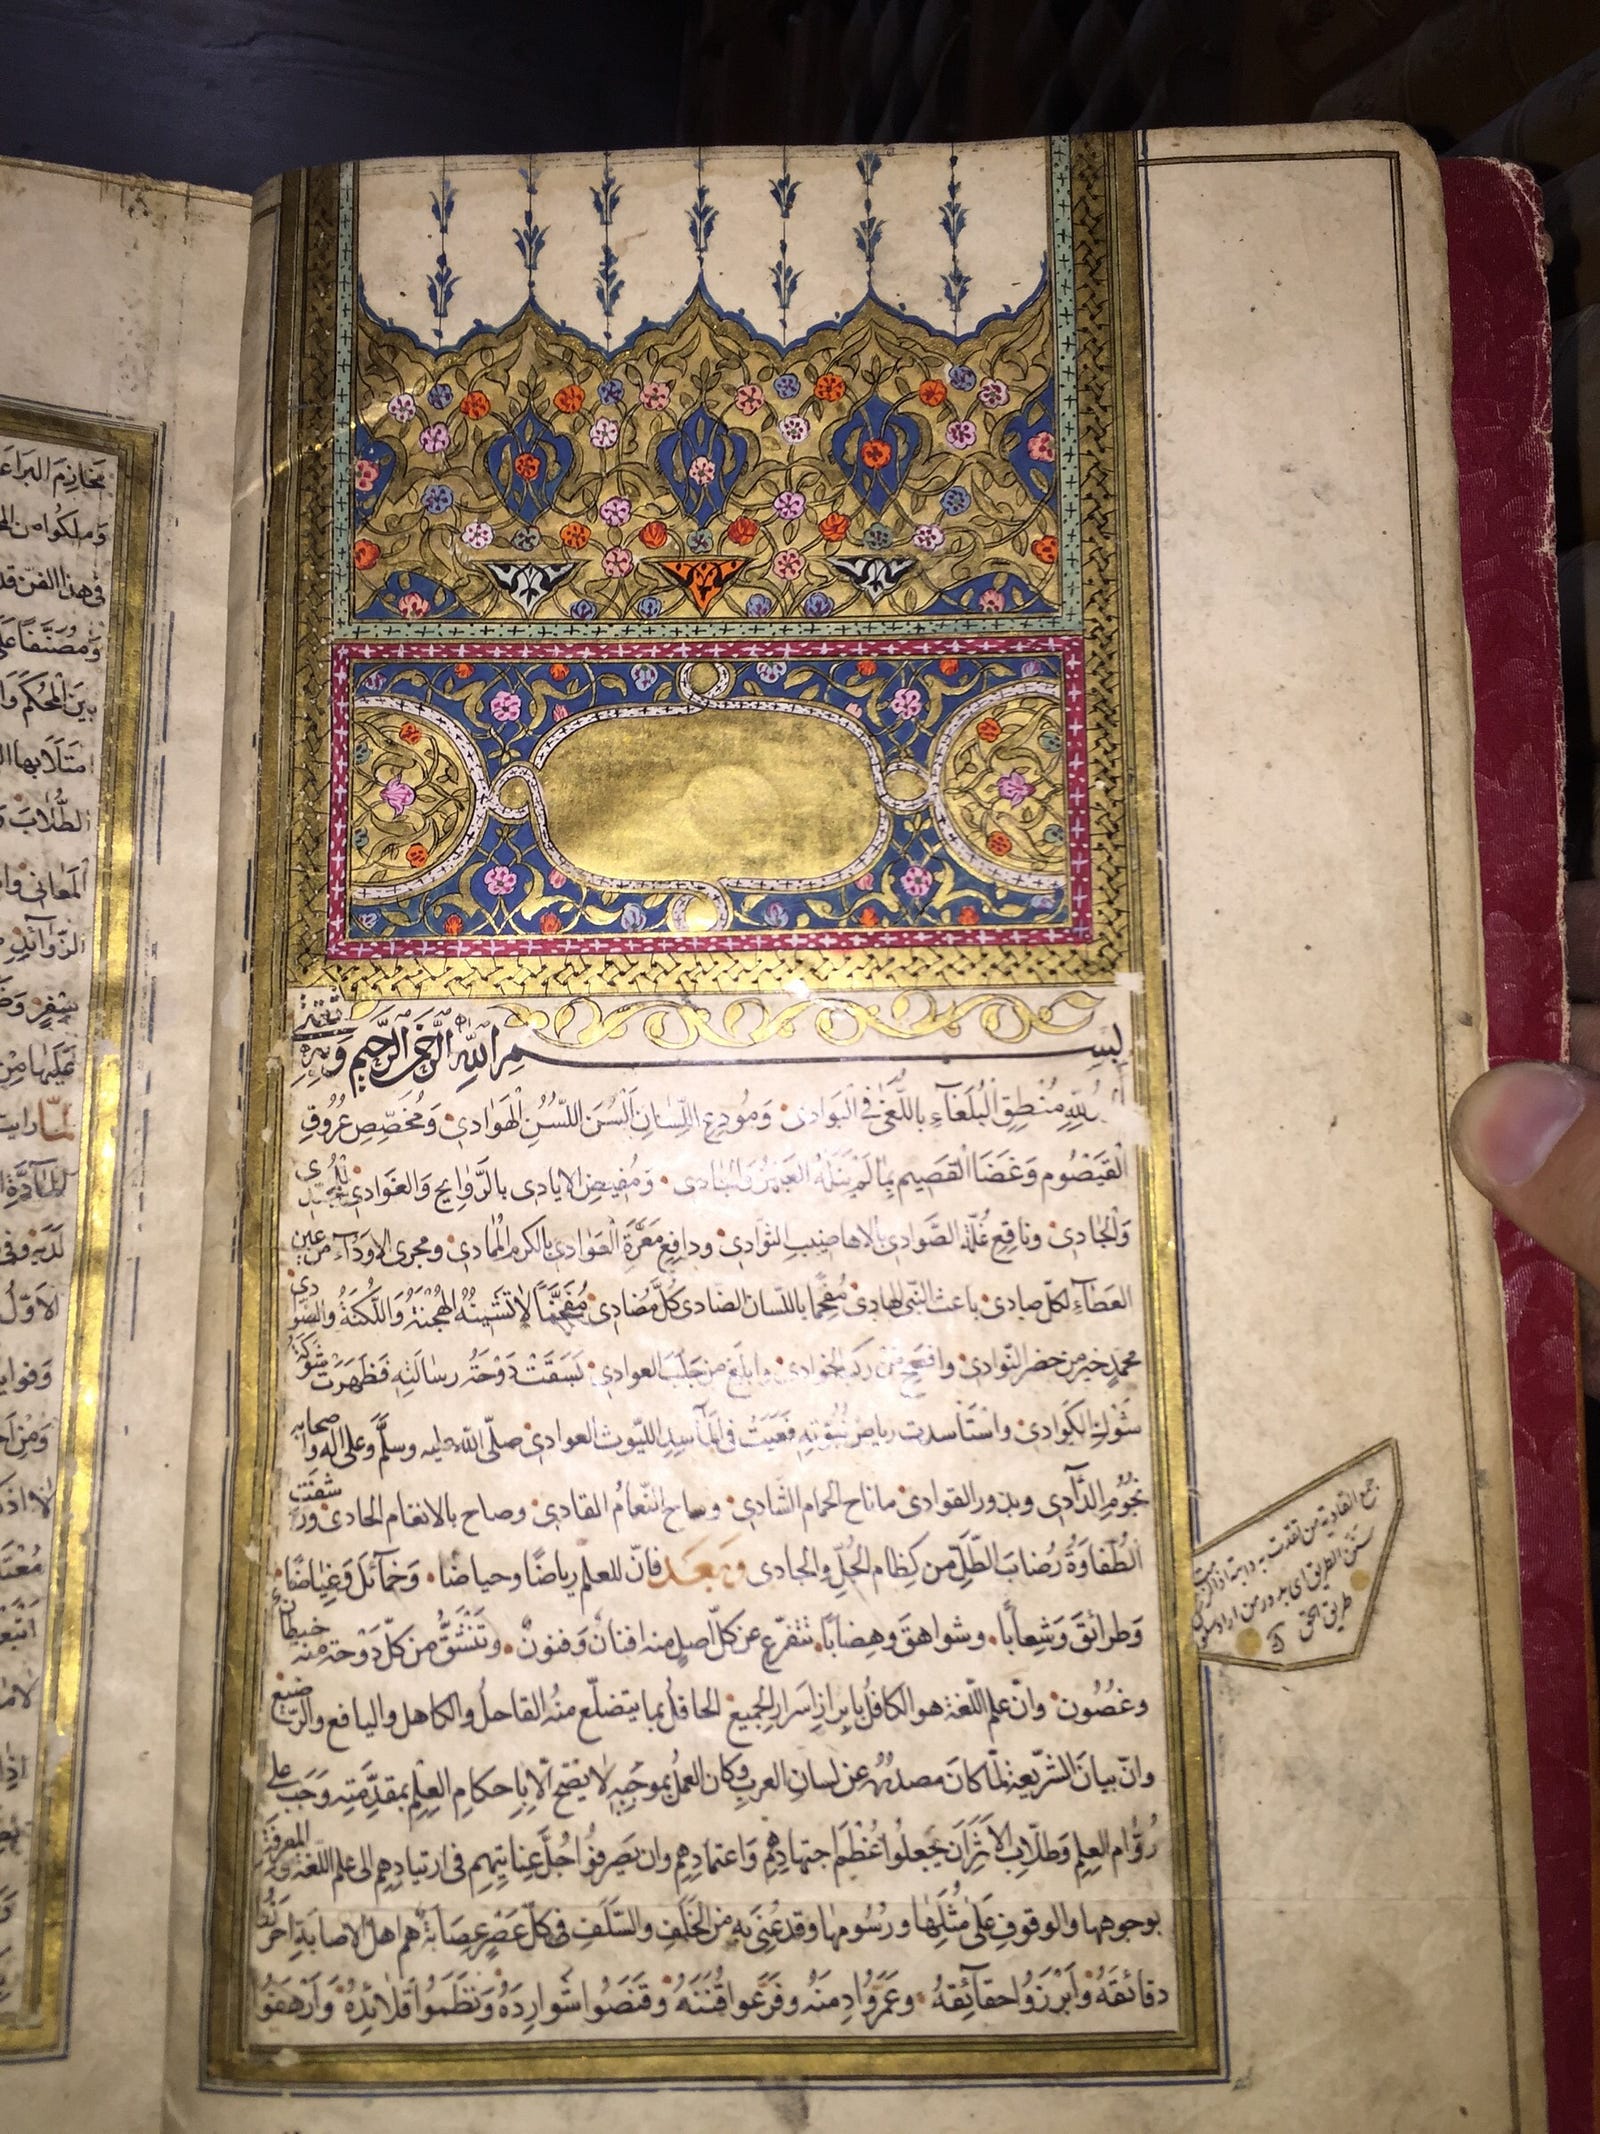 بسم الله الرحمن الرحيم وبه ثقتي
لله منطق البلغاء باللغى في البوادي ومودع اللسان ألسن اللسن الهوادي ومخصص عروق
القيصوم وغضا القصيم بما لم ينله العبهر والجادي ومفيض الايادي بالروايح والغوادي للمجتدي
والجادي وناقع غلة الصوادي بالاهاضيب الثوادي ودافع معرة العوادي بالكرم الممادي ومجرى الاوداء من عين
العطاء لكل صادي باعث النبي الهادي مفحما باللسان الضادي كل مضادي مفخما لا تشينه الهجنة واللكنة والضوادي
محمد خير من حضر النوادي وافصح من ركب الخوادي وابلغ من حلب العوادي بسقت دوحة رسالته فظهرت شوكة
شوك الكوادي واستأسدت رياض نبوته فعيت في المآسد الليوث العوادي صلى الله عليه وسلم وعلى آله واصحابه
نجوم الدآدي وبدور القوادي ما ناح الحمام الشادي وساح النعام القادي وصاح بالانغام الحادي ورشفت
الطفاوة رضاب الطل من كظام الجل والجادي وبعد فان للعلم رياضا وحياضا وخمائل وغياضا
وطرائق وشعابا وشواهق وهضابا تتفرع عن كل اصل منه افنان وفنون وتنشق من كل دوحة منه خيطان
وغصون وان علم اللغة هو الكافل بابراز اسرار الجميع الحافل بما يتضلع منه القاحل والكاهل واليافع والرضيع
وان بيان الشريعة لما كان مصدره عن لسان العرب وكان العمل بموجبه لا يصح الا باحكام العلم بمقدمته وجب على
روام العلم وطلاب الاثر ان يجعلوا عظم اجتهادهم واعتمادهم وان يصرفوا جل عنايتهم في ارتيادهم الى علم اللغة والمعرفة
بوجوهها والوقوف على مثلها ورسومها وقد عني به من الخلف والسلف في كل عصر عصابة هم اهل الاصابة احرزوا
دقائقه وأبرزوا حقائقه وعمروا دمنه وفرعوا قننه وقنصوا شوارده ونظموا قلائده وأرهفوا
جمع القادية من اقتدت به دابته اذا لزمت
سنن الطريق اي بدور من اراد سلوك
طريق الحق
مخاذم البراعة
وملكوا من
في هذا الفن
ومصنفا على
بين المحكم
امتلا بها
الطلاب
المعاني
الزوائد
سفر
عليها من
لما رايت
المادة
لديه وفي
الاول
وفوايد
ومن
لا اذكر